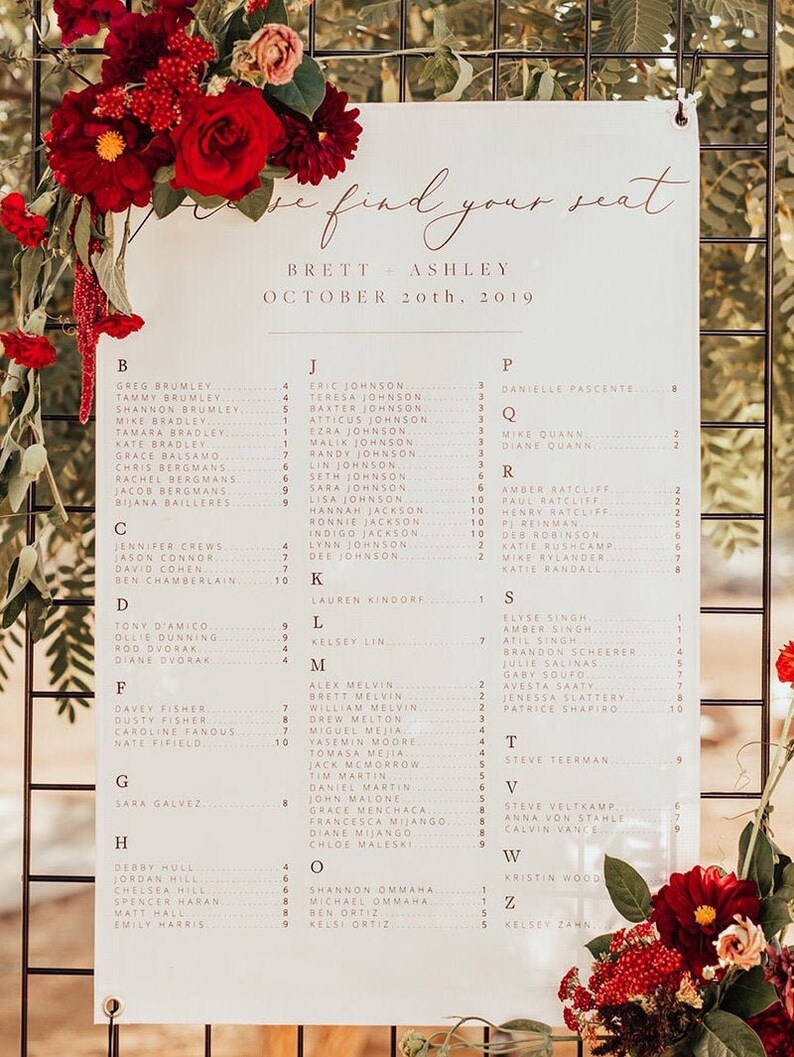 find your seat
BRETT + ASHLEY
OCTOBER 20th, 2019
B
GREG BRUMLEY..........4
TAMMY BRUMLEY..........4
SHANNON BRUMLEY..........5
MIKE BRADLEY..........1
TAMARA BRADLEY..........1
KATE BRADLEY..........1
GRACE BALSAMO..........7
CHRIS BERGMANS..........6
RACHEL BERGMANS..........6
JACOB BERGMANS..........9
BIJANA BAILLERES..........9
C
JENNIFER CREWS..........4
JASON CONNOR..........7
DAVID COHEN..........7
BEN CHAMBERLAIN..........10
D
TONY D'AMICO..........9
OLLIE DUNNING..........9
ROD DVORAK..........4
DIANE DVORAK..........4
F
DAVEY FISHER..........7
DUSTY FISHER..........8
CAROLINE FANOUS..........7
NATE FIFIELD..........10
G
SARA GALVEZ..........8
H
DEBBY HULL..........4
JORDAN HILL..........6
CHELSEA HILL..........6
SPENCER HARAN..........8
MATT HALL..........8
EMILY HARRIS..........9
J
ERIC JOHNSON..........3
TERESA JOHNSON..........3
BAXTER JOHNSON..........3
ATTICUS JOHNSON..........3
EZRA JOHNSON..........3
MALIK JOHNSON..........3
RANDY JOHNSON..........3
LIN JOHNSON..........3
SETH JOHNSON..........6
SARA JOHNSON..........6
LISA JOHNSON..........10
HANNAH JACKSON..........10
RONNIE JACKSON..........10
INDIGO JACKSON..........10
LYNN JOHNSON..........2
DEE JOHNSON..........2
K
LAUREN KINDORF..........1
L
KELSEY LIN..........7
M
ALEX MELVIN..........2
BRETT MELVIN..........2
WILLIAM MELVIN..........2
DREW MELTON..........3
MIGUEL MEJIA..........4
YASEMIN MOORE..........4
TOMASA MEJIA..........4
JACK MCMORROW..........5
TIM MARTIN..........5
DANIEL MARTIN..........6
JOHN MALONE..........5
GRACE MENCHACA..........8
FRANCESCA MIJANGO..........8
DIANE MIJANGO..........8
CHLOE MALESKI..........9
O
SHANNON OMMAHA..........1
MICHAEL OMMAHA..........1
BEN ORTIZ..........5
KELSI ORTIZ..........5
P
DANIELLE PASCENTE..........8
Q
MIKE QUANN..........2
DIANE QUANN..........2
R
AMBER RATCLIFF..........2
PAUL RATCLIFF..........2
HENRY RATCLIFF..........2
PJ REINMAN..........5
DEB ROBINSON..........6
KATIE RUSHCAMP..........6
MIKE RYLANDER..........7
KATIE RANDALL..........8
S
ELYSE SINGH..........1
AMBER SINGH..........1
ATIL SINGH..........1
BRANDON SCHEERER..........4
JULIE SALINAS..........5
GABY SOUFO..........7
AVESTA SAATY..........7
JENESSA SLATTERY..........8
PATRICE SHAPIRO..........10
T
STEVE TEERMAN..........9
V
STEVE VELTKAMP..........6
ANNA VON STAHLE..........7
CALVIN VANCE..........9
W
KRISTIN WOOD
Z
KELSEY ZAHN....